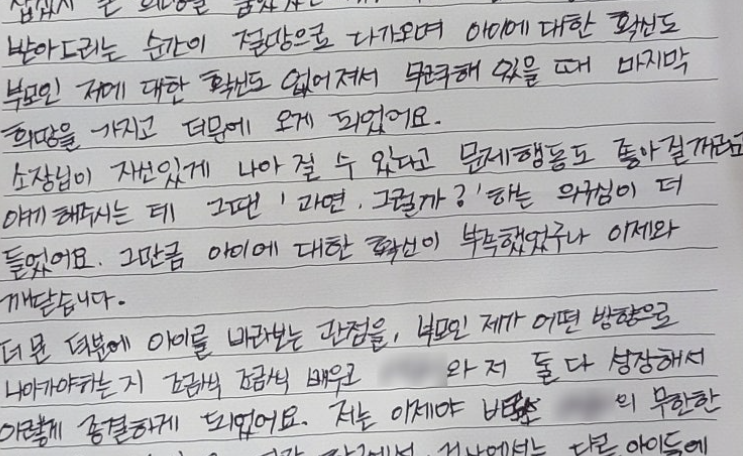 받아드리는 순간이 절망으로 다가오며 아이에 대한 확신도
부모인 저에 대한 확신도 없어져서 무력해 있을 때 마지막
희망을 가지고 더문에 오게 되었어요.
소장님이 자신있게 나아 질 수 있다고 문제행동도 좋아질꺼라고
얘기 해주시는 데 그땐 '과연, 그럴까?' 하는 의구심이 더
들었어요. 그만큼 아이에 대한 확신이 부족했었구나 이제와
깨닫습니다.
더 문 덕분에 아이를 바라보는 관점을, 부모인 제가 어떤 방향으로
나아가야하는 지 조금식 조금식 배우고 와 저 둘 다 성장해서
이렇게 종결하게 되었어요. 저는 이제야 의 무한한
다른 아이들에